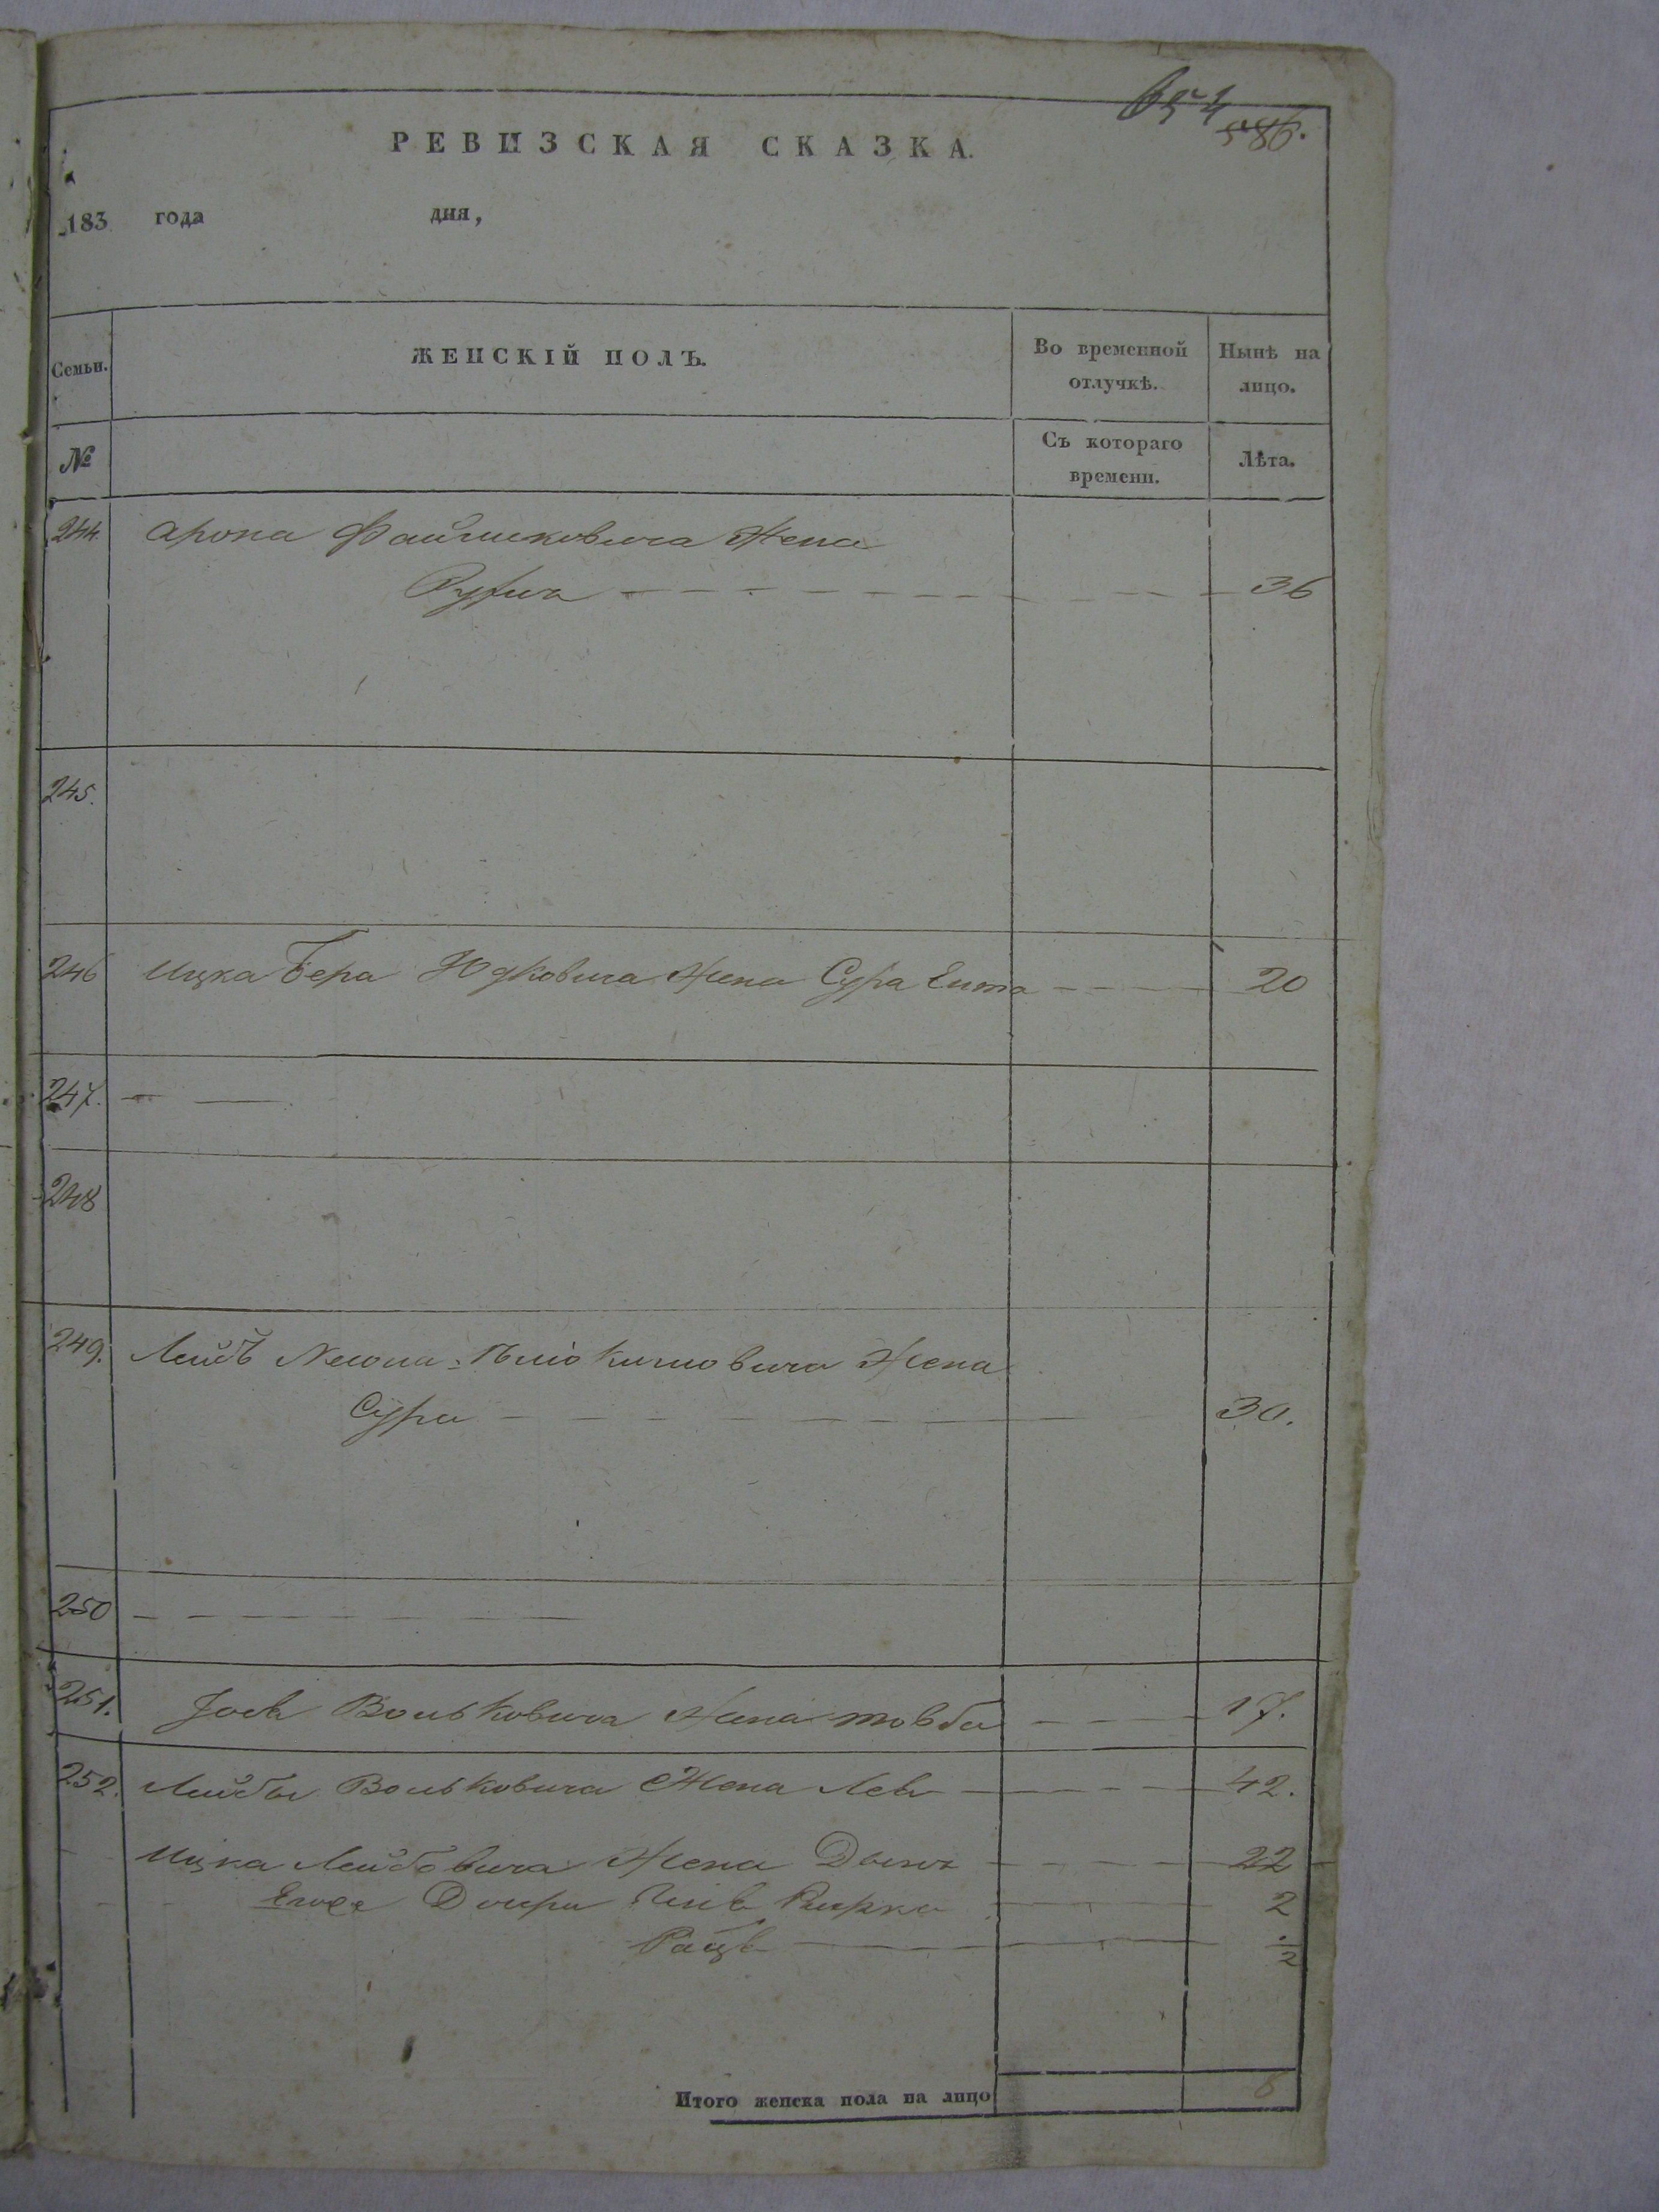 586.
РЕВИЗСКАЯ СКАЗКА.
183 года дня,
Семьи. ЖЕНСКІЙ ПОЛЪ. Во временной отлучкѣ. Нынѣ на лицо.
№ Съ котораго времени. Лѣта.
244. Арона Файтковича Жена
36
245.
246 Ицка Бера Юдковича Жена Сура Ента 20
247.
248
249. Жена
Сура 30.
250
251. Вольковича Жена товба 17.
252. Лейбы Вольковича Жена Лея 42.
Ицка Лейбовича Жена 22
Его Дочери Рырка 2
1/2
Итого женска пола на лицо 8